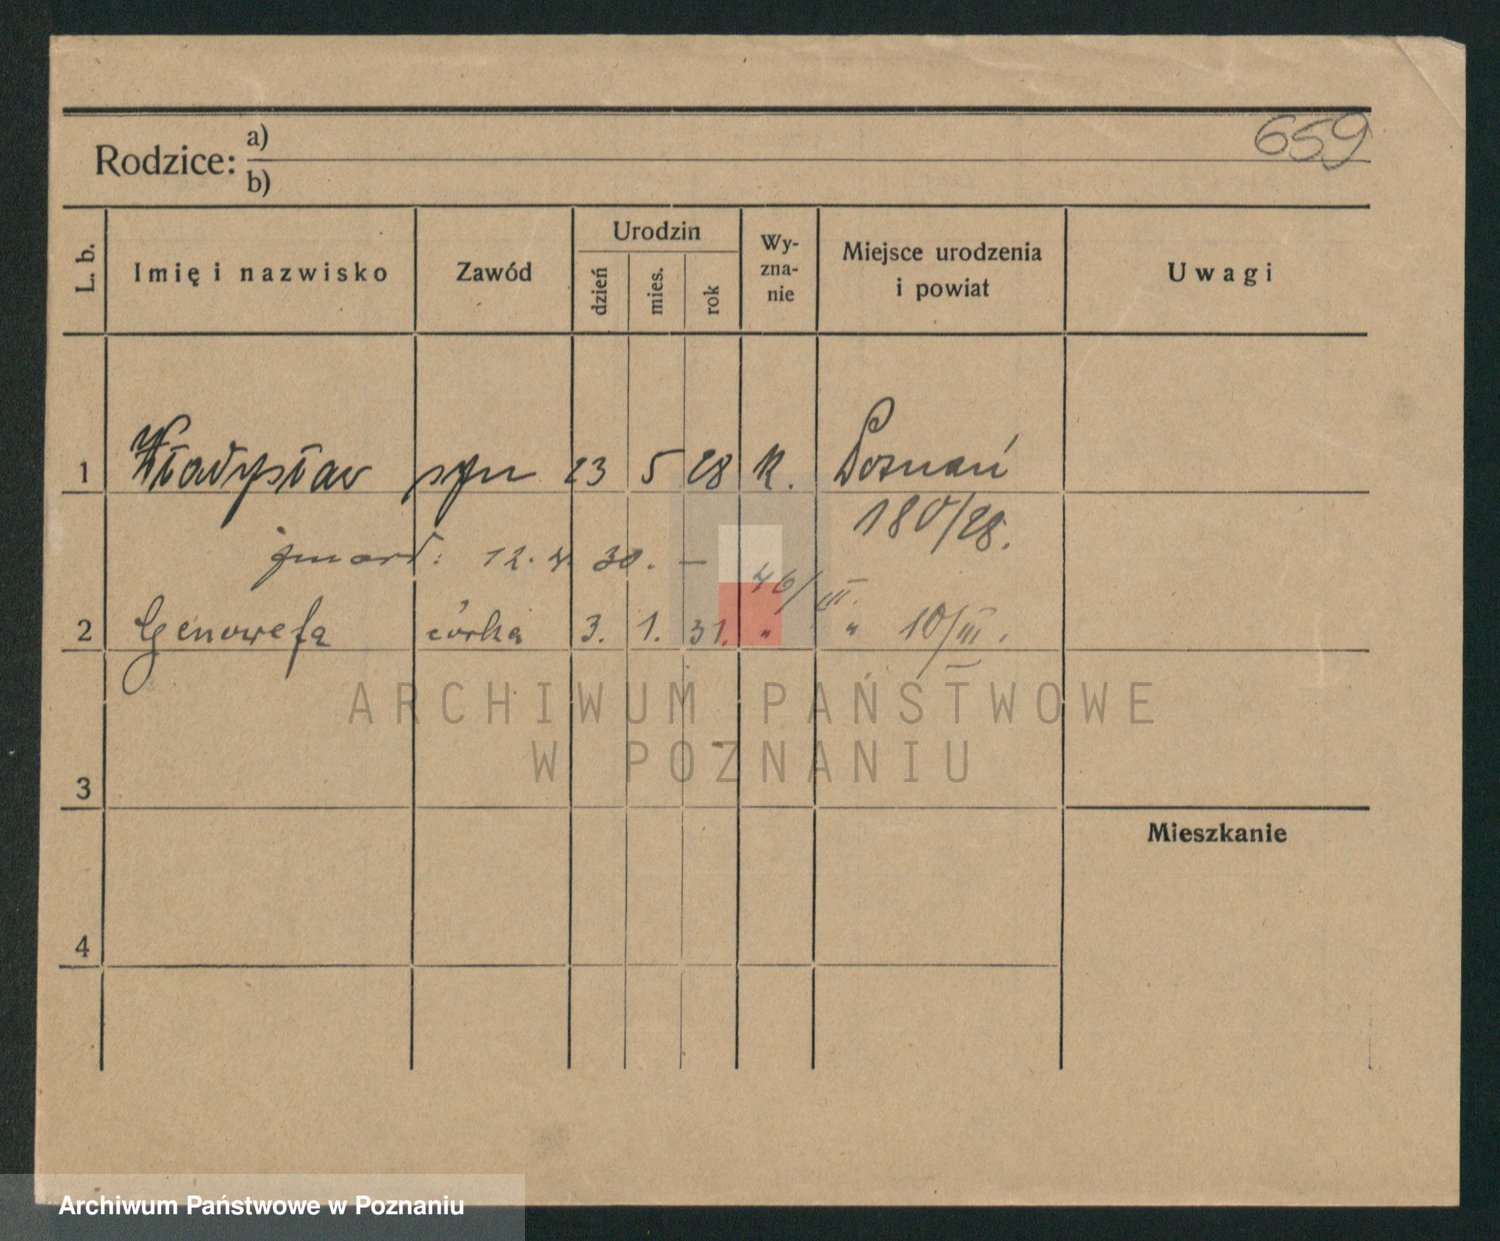 659
Rodzice: a)
b)
L. b. Imię i nazwisko Zawód Urodzin dzień mies. rok Wy-zna-nie Miejsce urodzenia i powiat Uwagi
1 Władysław syn 23 5 28 k. Poznań
180/28.
zmarł: 12. 4. 30. — 46/III.
2 Genowefa córka 3. 1. 31. " " 10/III.
ARCHIWUM PAŃSTWOWE
W POZNANIU
3
Mieszkanie
4
Archiwum Państwowe w Poznaniu